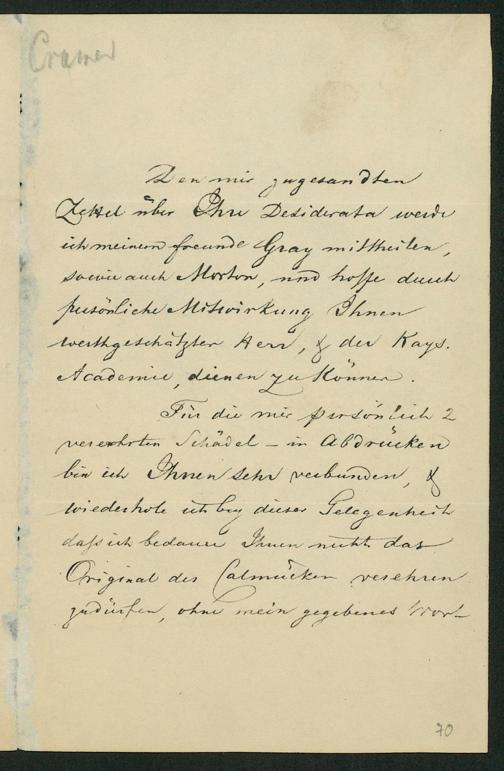 Cramer
Den mir zugesandten
Zettel über Ihre Desiderata werde
ich meinem freunde Gray mittheilen,
sowie auch Morton, und hoffe durch
persönliche Mitwirkung Ihnen
werthgeschätzter Herr, & der Kays.
Academie, dienen zu Können.
Für die mir persönlich 2
verehrten Schädel – in Abdrücken
bin ich Ihnen sehr verbunden, &
wiederhole ich bey dieser Gelegenheit
daß ich bedaure Ihnen nicht das
Original des Calmücken verehren
zudürfen, ohne mein gegebenes Wort
70